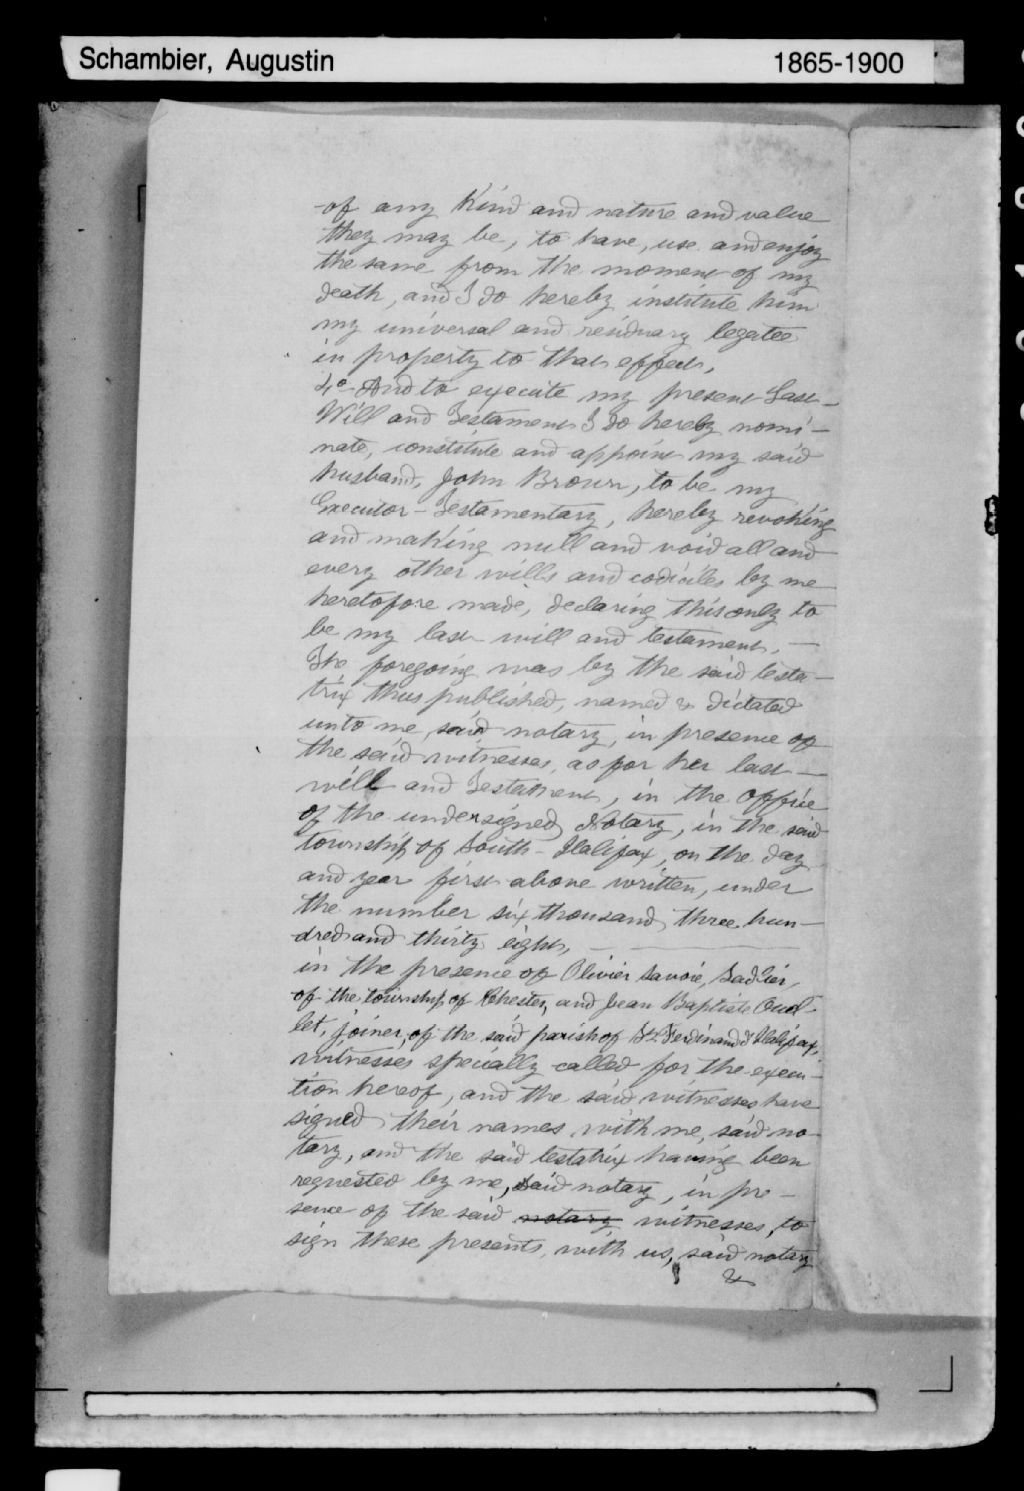 Schambier, Augustin 1865-1900
of any Kind and nature and value
they may be, to have, use and enjoy
the same from the moment of my
death, and I do hereby institute him
my universal and residuary legatee
in property to that effect,
4o And to execute my present Last-
Will and Testament I do hereby nomi-
nate, constitute and appoint my said
husband, John Brown, to be my
Executor-Testamentary, hereby revoking
and making null and void all and
every other wills and codiciles by me
heretofore made, declaring this only to
be my last will and testament. —
The foregoing was by the said testa-
trix thus published, named & dictated
unto me, said notary, in presence of
the said witnesses, as for her last —
will and Testament, in the office
of the undersigned Notary, in the said
township of South-Halifax, on the day
and year first above written, under
the number six thousand three hun-
dred and thirty eight, —
in the presence of Olivier Savoie, Sadlier,
of the township of Chester, and Jean Baptiste Ouel-
let, joiner, of the said parish of St. Ferdinand d'Halifax,
witnesses specially called for the execu-
tion hereof, and the said witnesses have
signed their names with me, said no-
tary, and the said testatrix having been
requested by me, said notary, in pre-
sence of the said notary witnesses, to
sign these presents, with us, said notary
&